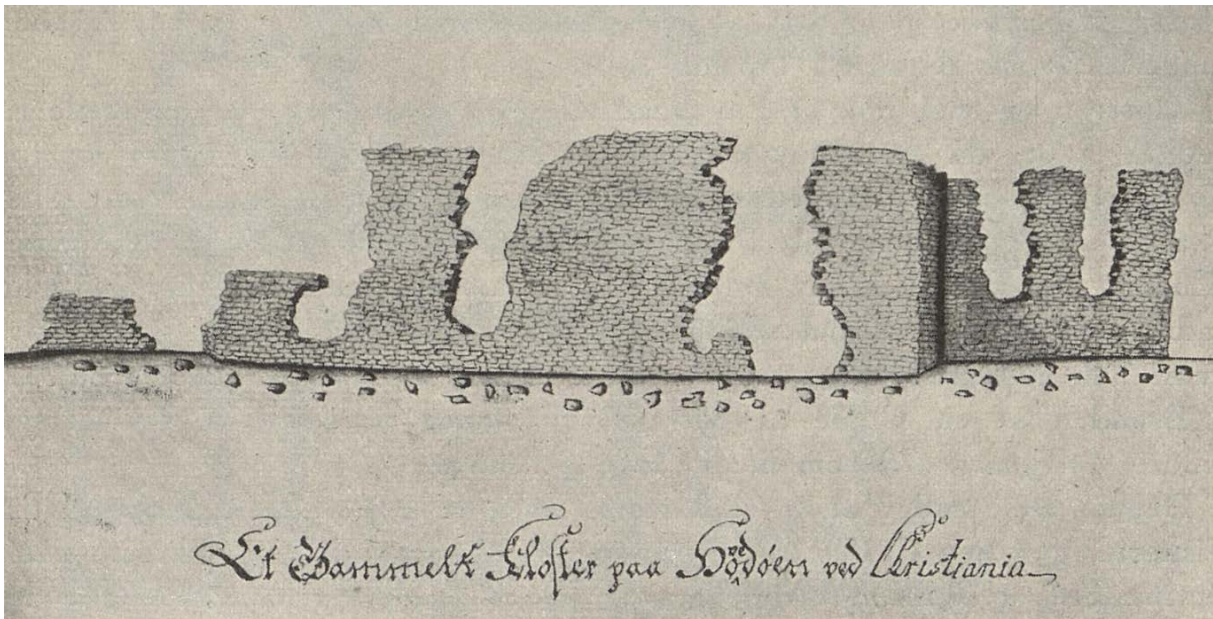 Et Gammelt Kloster paa Hovedøen ved Christiania